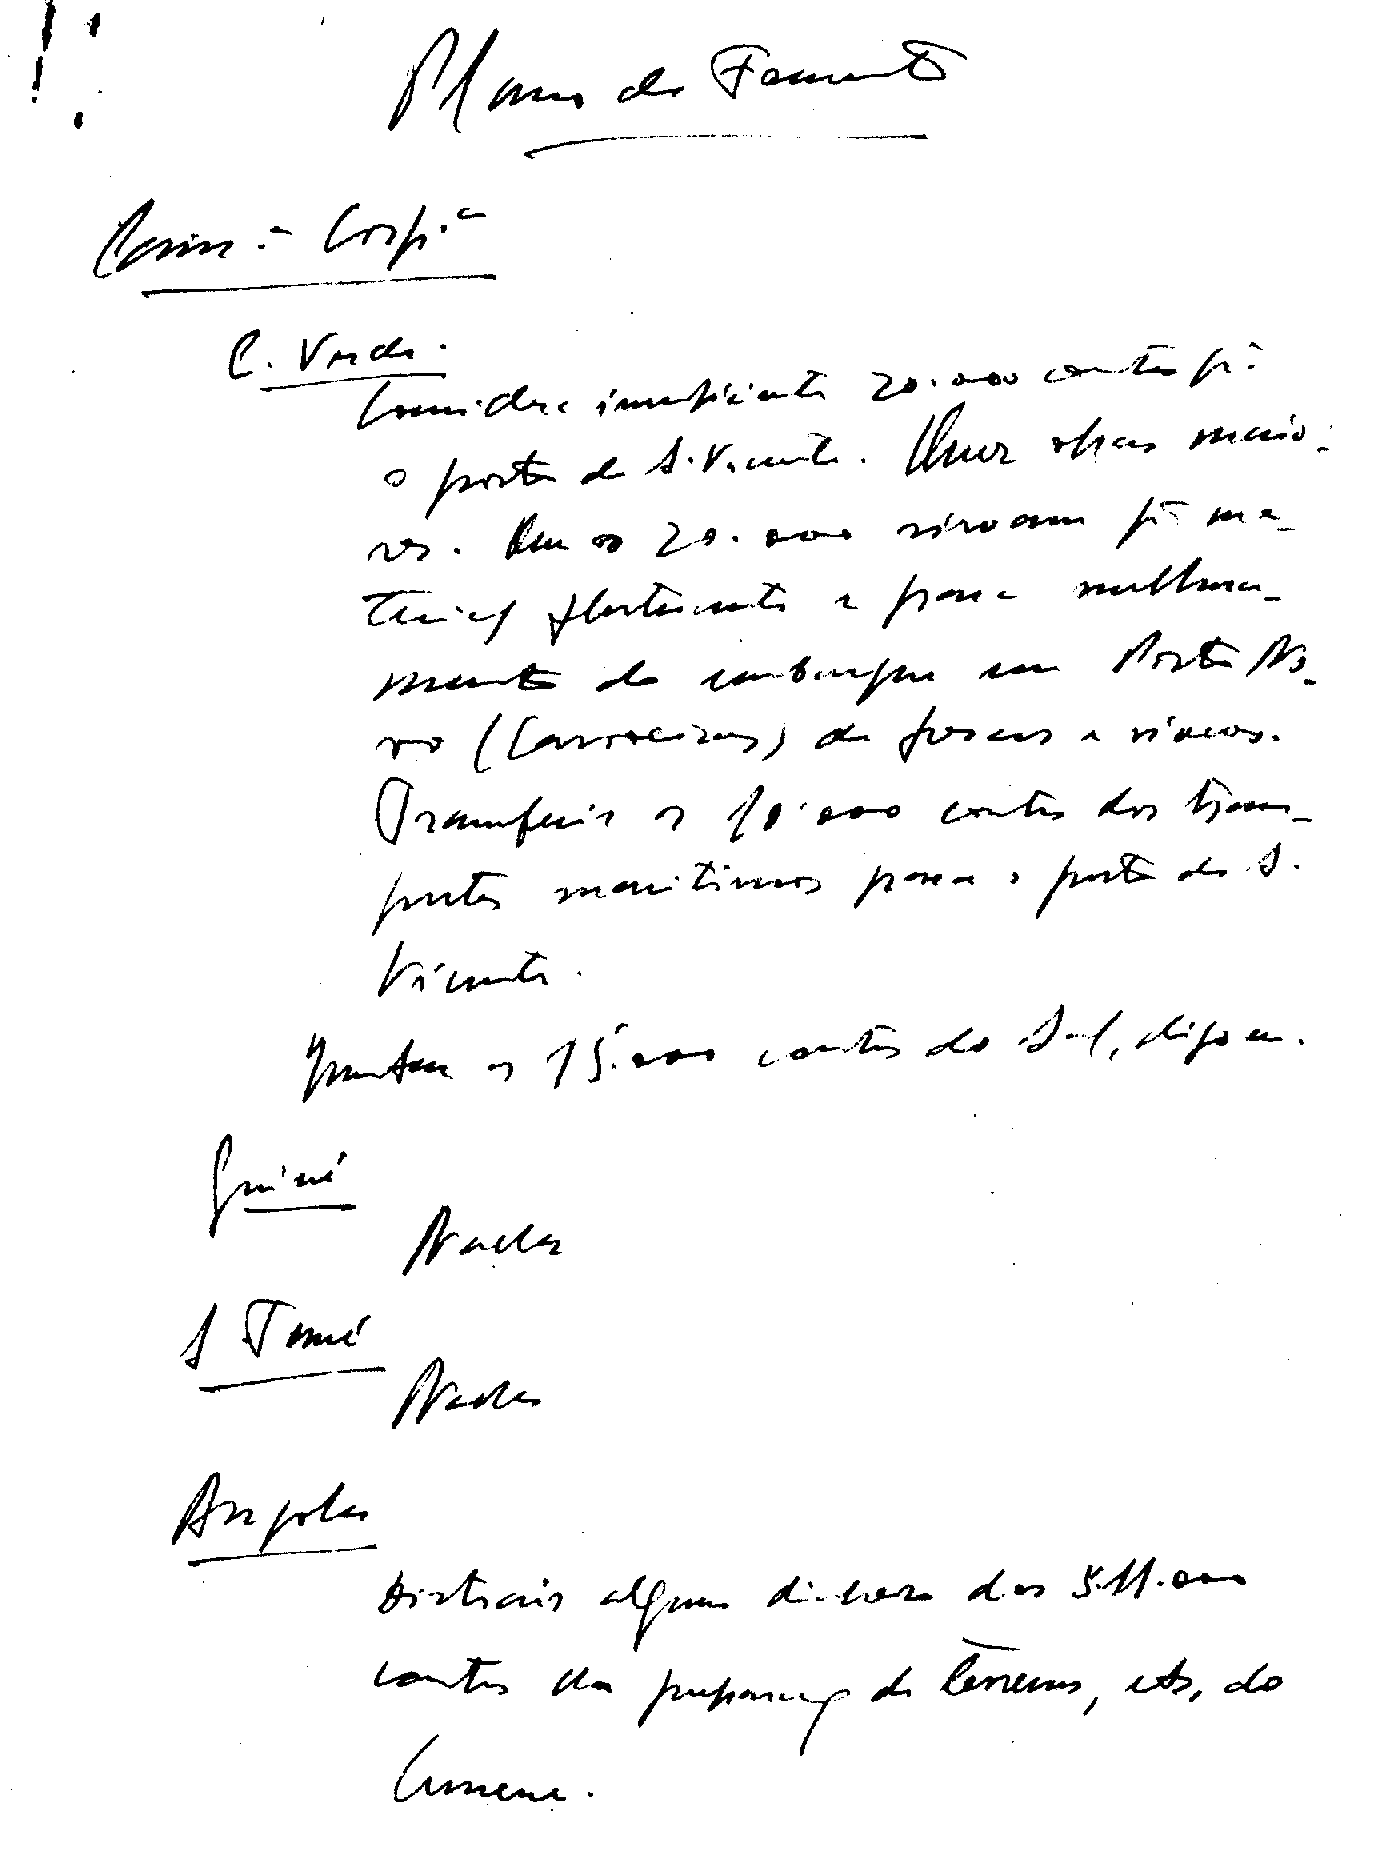 Plano de Fomento
Cam.ª Corp.ª
C. Verde.
Considera insuficiente 20.000 contos pª
o porto de S. Vicente. Quer obras maio-
res. Que os 20.000 sirvam pª ma-
terial flutuante e para melhora-
mento do embarque em Porto No-
vo (Carvoeiros) de frescos e víveres.
Transferir os 10.000 contos dos trans-
portes maritimos para o porto de S.
Vicente.
os 15.000 contos do Sal, digo eu.
Guiné
Nada
S Tomé
Nada
Angola
Distrair algum dinheiro dos 511.000
contos da preparação de terrenos, etc, do
Cunene.